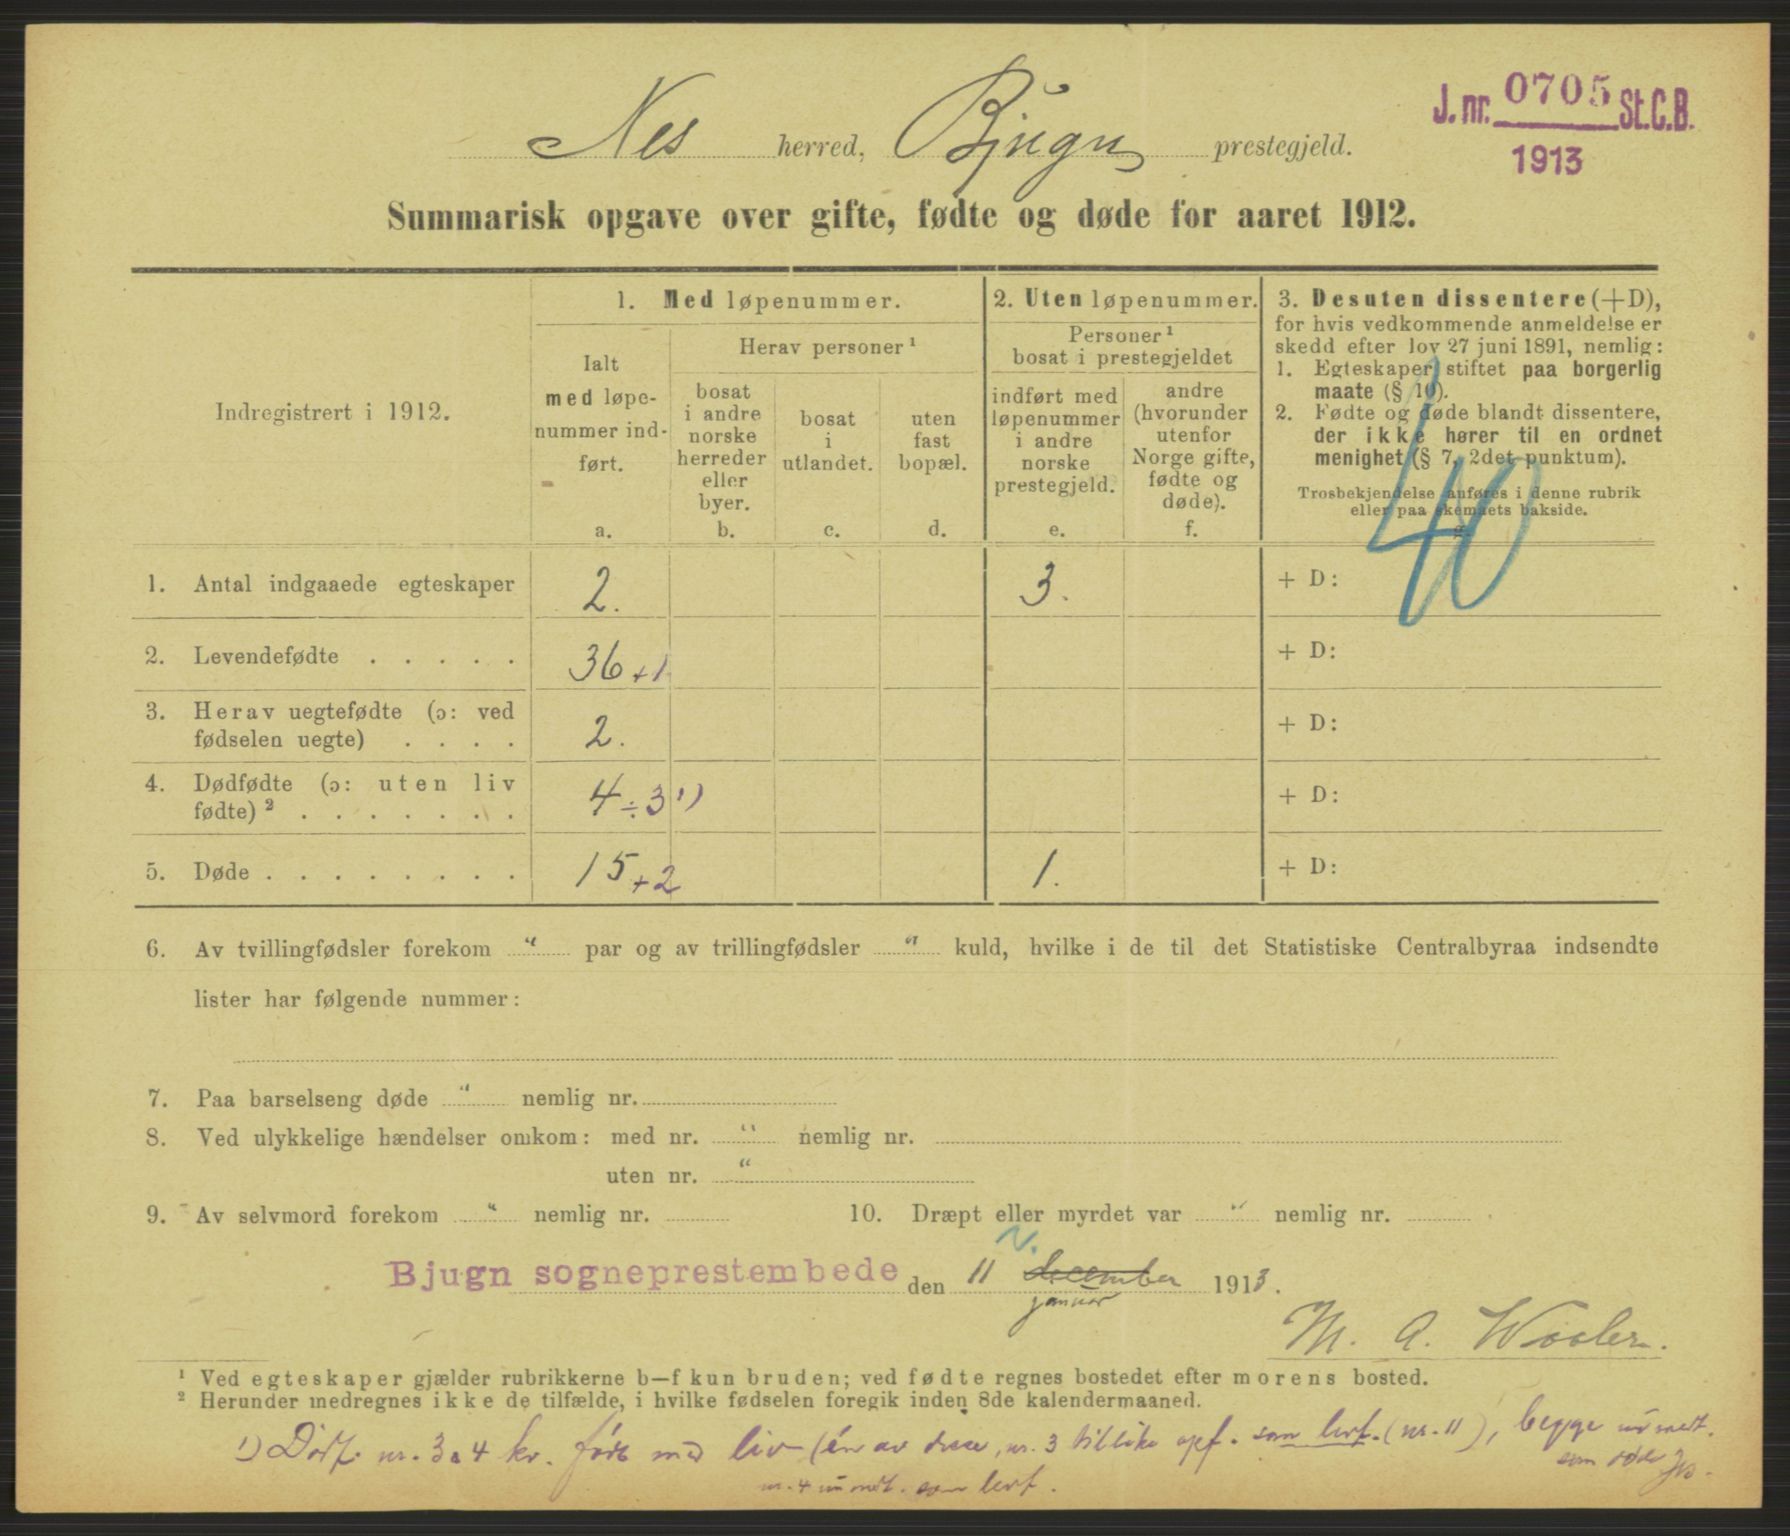 J. nr. 0705 St.C.B.
1913
Nes herred, Bjugn prestegjeld.
Summarisk opgave over gifte, fødte og døde for aaret 1912.
Indregistrert i 1912.
1. Med løpenummer.
Ialt
med løpe-
nummer ind-
ført.
a.
Herav personer¹
bosat
i andre
norske
herreder
eller
byer.
b.
bosat
i
utlandet.
c.
uten
fast
bopæl.
d.
2. Uten løpenummer.
Personer¹
bosat i prestegjeldet
indført med
løpenummer
i andre
norske
prestegjeld.
e.
andre
(hvorunder
utenfor
Norge gifte,
fødte og
døde).
f.
3. Desuten dissentere (+D),
for hvis vedkommende anmeldelse er
skedd efter lov 27 juni 1891, nemlig:
1. Egteskaper stiftet paa borgerlig
maate (§ 10).
2. Fødte og døde blandt dissentere,
der ikke hører til en ordnet
menighet (§ 7, 2det punktum).
Trosbekjendelse anføres i denne rubrik
eller paa skemaets bakside.
g.
40
1. Antal indgaaede egteskaper 2. 3. + D:
2. Levendefødte . . . . . 36 +1 + D:
3. Herav uegtefødte (ɔ: ved
fødselen uegte) . . . . 2. + D:
4. Dødfødte (ɔ: uten liv
fødte)² . . . . . . . 4 ÷3 ¹) + D:
5. Døde . . . . . . . . . 15 +2 1. + D:
6. Av tvillingfødsler forekom " par og av trillingfødsler " kuld, hvilke i de til det Statistiske Centralbyraa indsendte
lister har følgende nummer:
7. Paa barselseng døde " nemlig nr.
8. Ved ulykkelige hændelser omkom: med nr. " nemlig nr.
uten nr. "
9. Av selvmord forekom " nemlig nr. 10. Dræpt eller myrdet var " nemlig nr.
Bjugn sogneprestembede den 11 december 1913.
januar
M. A.
¹ Ved egteskaper gjælder rubrikkerne b—f kun bruden; ved fødte regnes bostedet efter morens bosted.
² Herunder medregnes ikke de tilfælde, i hvilke fødselen foregik inden 8de kalendermaaned.
1) Dødf. nr. 3 4 kr. født med liv (én av disse, nr. 3 tillike opf. som levf. (nr. 11), begge
som døde
nr. 4 som levf.